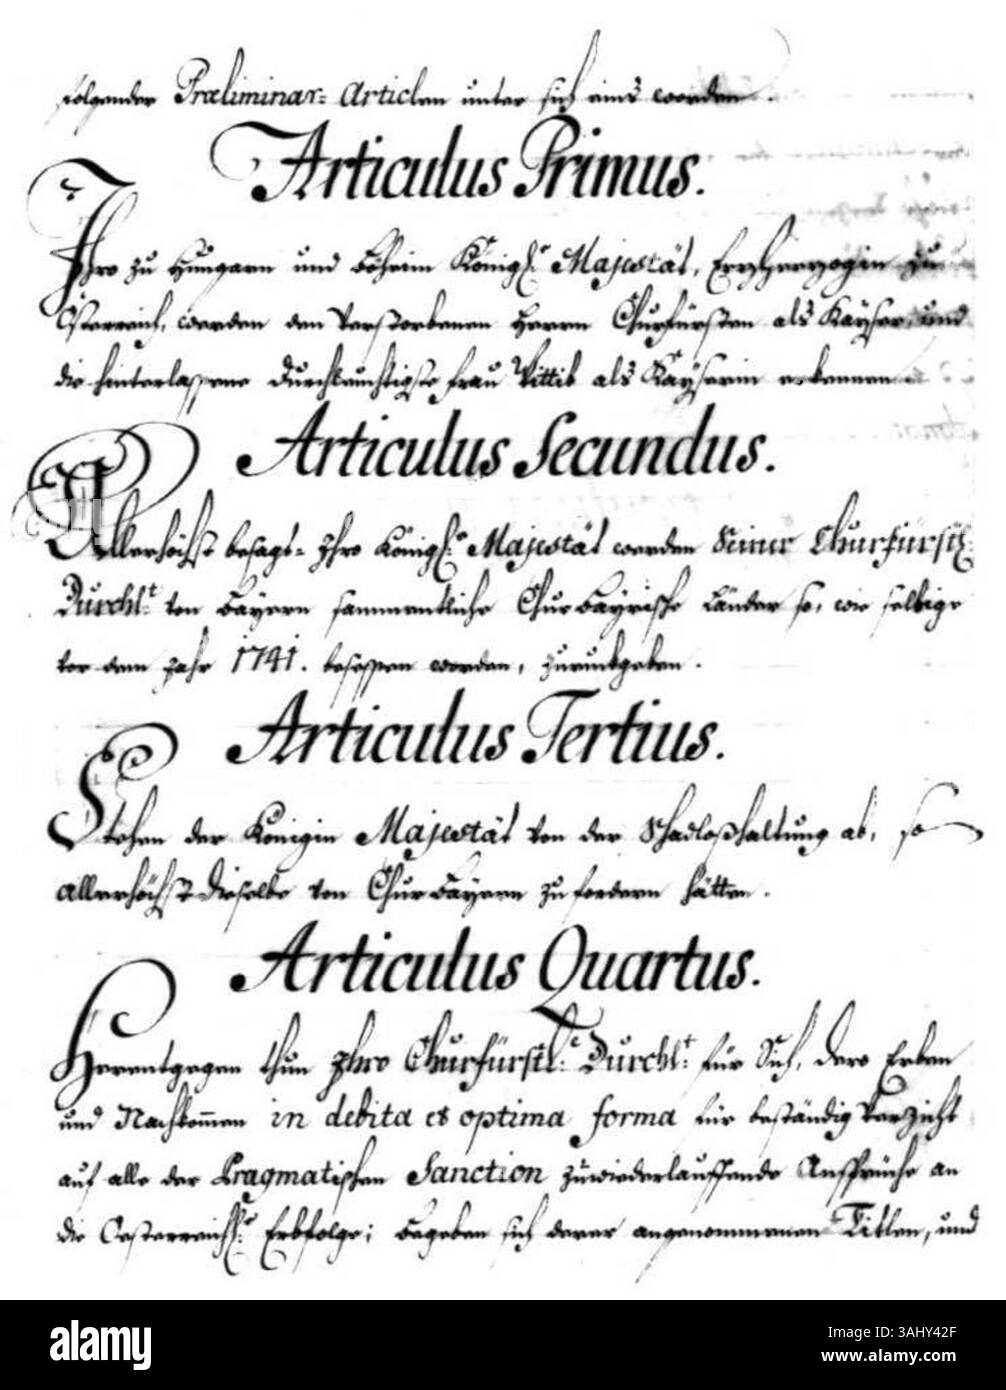 folgender Præliminar= Articlen unter sich eins worden.
Articulus Primus.
Ihro zu Hungarn und Böheim Königl:e Majestät, Erzherzogin zu
Österreich, werden den verstorbenen Herrn Churfürsten als Kayser, und
die hinterlassene Durchleuchtigste Frau Wittib als Kayserin erkennen
Articulus Secundus.
Allerhöchst besagt= Ihro Königl:e Majestät werden Seiner Churfürstl:
Durchl:t von Bayern sammentliche ChurBayrische Länder so, wie selbige
vor dem Jahr 1741. besessen worden, zuruckgeben.
Articulus Tertius.
Stehen der Königin Majestät von der Schadloßhaltung ab, so
allerhöchst dieselbe von ChurBayern zu fordern hätten.
Articulus Quartus.
Herentgegen thun Ihro Churfürstl:e Durchl:t für Sich, dero Erben
und Nachkom̄en in debita et optima forma für beständig Verzicht
auf alle der Pragmatischen Sanction zuwiederlauffende Ansprüche an
die Oesterreichl:e Erbfolge; begeben sich derer angenommenen Titlen, und
alamy
Image ID: 3AHY42F
www.alamy.com